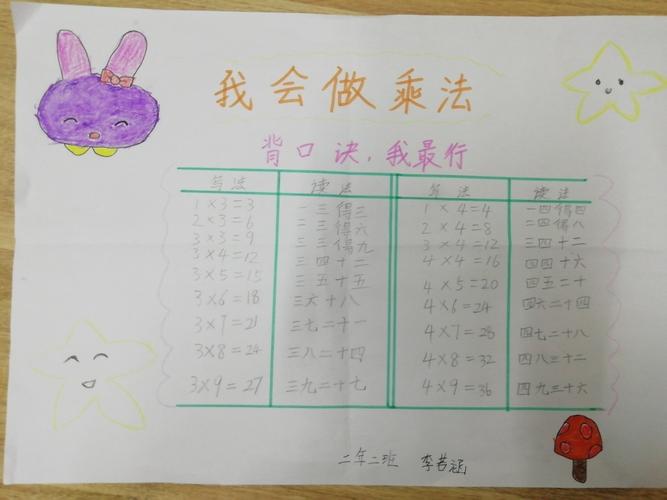 我会做乘法
背口诀,我最行
写法 读法 写法 读法
1×3=3 一三得三 1×4=4 一四得四
2×3=6 二三得六 2×4=8 二四得八
3×3=9 三三得九 3×4=12 三四十二
3×4=12 三四十二 4×4=16 四四十六
3×5=15 三五十五 4×5=20 四五二十
3×6=18 三六十八 4×6=24 四六二十四
3×7=21 三七二十一 4×7=28 四七二十八
3×8=24 三八二十四 4×8=32 四八三十二
3×9=27 三九二十七 4×9=36 四九三十六
二年二班 李若涵